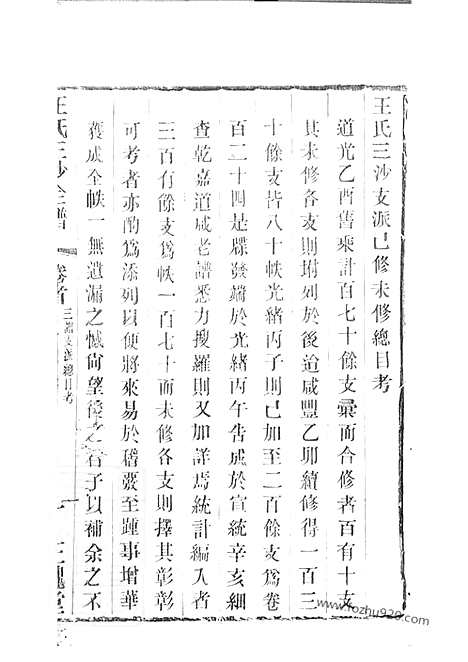 王氏三沙支派已修未修總目考
道光乙酉舊乘計百七十餘支彙而合修者百有十支
其未修各支則坿列於後迨咸豐乙卯續修得一百三
十餘支皆八十帙光緒丙子則已加至二百餘支為卷
百二十四是牒發端於光緒丙午告成於宣統辛亥細
查乾嘉道咸老譜悉力搜羅則又加詳焉統計編入者
三百有餘支為帙一百七十而未修各支則擇其彰彰
可考者亦酌為添列以便將來易於稽覈至踵事增華
獲成全帙一無遺漏之憾尚望後之君子以補余之不
王氏三沙全譜
卷首
支派總目考
一
三槐堂
www.fozhu920.com